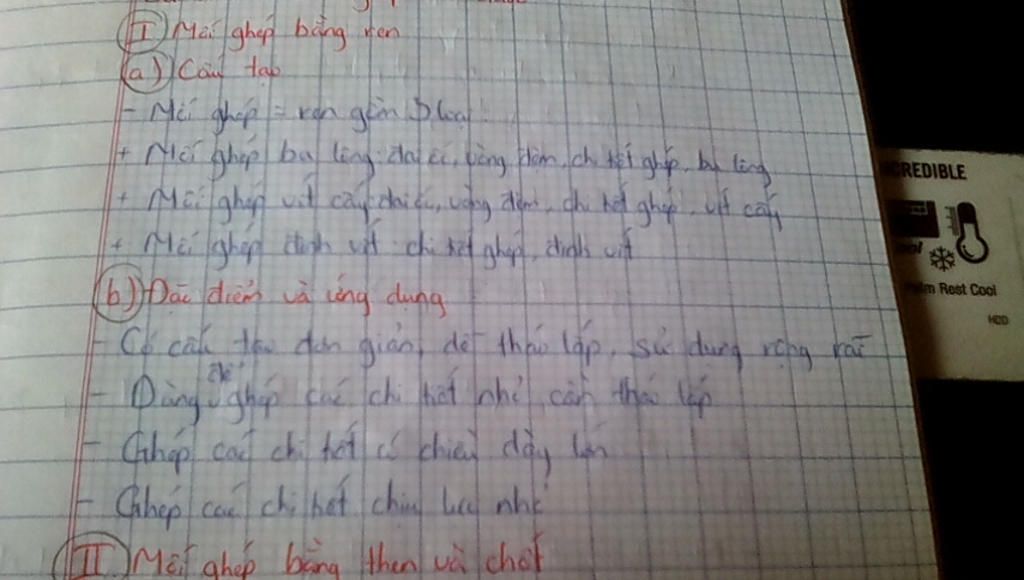 I Mối ghép bằng ren
a) Cấu tạo
- Mối ghép = ren gồm 3 loại
+ Mối ghép bu lông: đai ốc, vòng đệm, chi tiết ghép, bu lông
+ Mối ghép vít cấy: đai ốc, vòng đệm, chi tiết ghép, vít cấy
+ Mối ghép đinh vít: chi tiết ghép, đinh vít
b) Đặc điểm và ứng dụng
- Có cấu tạo đơn giản, dễ tháo lắp, sử dụng rộng rãi
- Dùng để ghép các chi tiết nhỏ, cần tháo lắp
- Ghép các chi tiết có chiều dày lớn
- Ghép các chi tiết chịu lực nhỏ
II Mối ghép bằng then và chốt
CREDIBLE
Palm Rest Cool
HDD